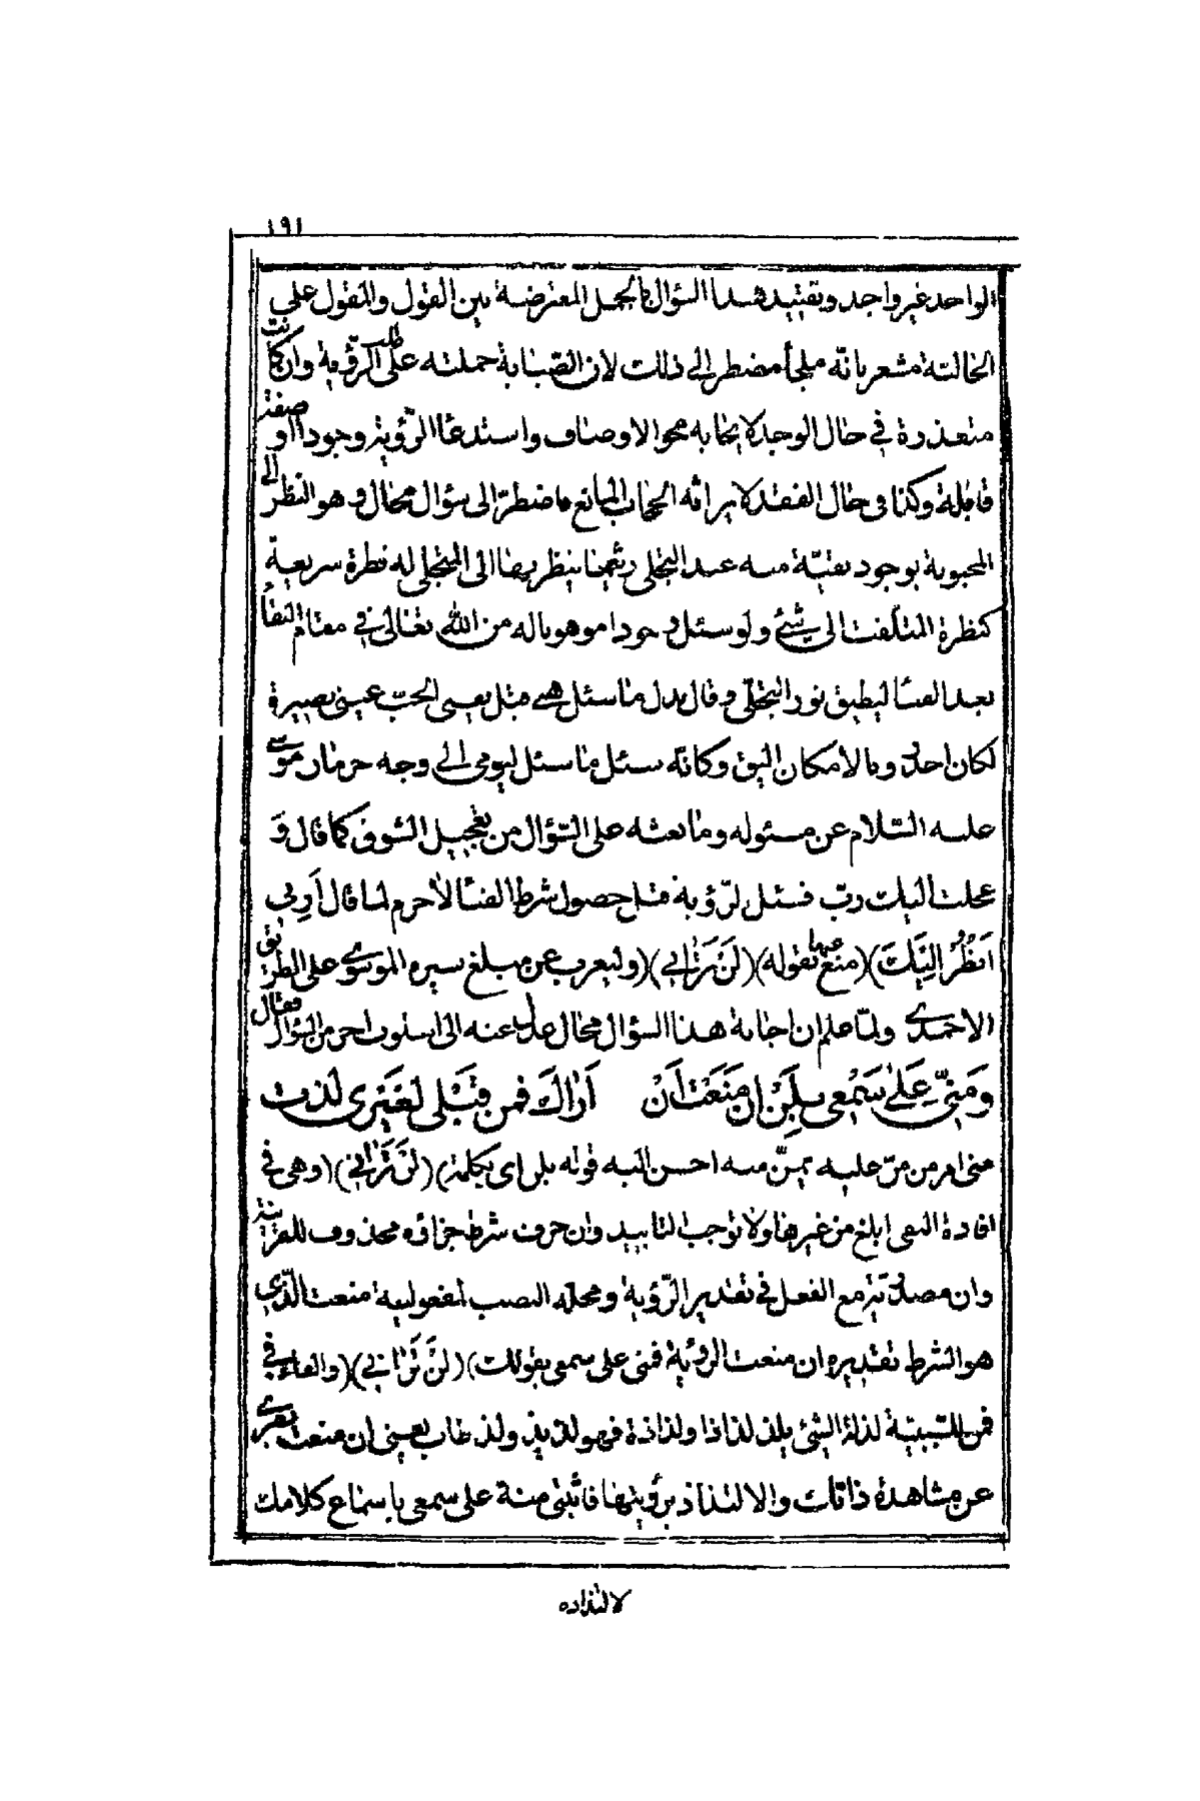 ١٩١
الواحد غير واجد وتقييد هذا السؤال بالجمل المعترضة بين القول والمقول على
الحالية مشعر بانّه ملجأ مضطر الى ذلك لان الصّبابة حملته على طلب الرّؤية وان كانت
متعذرة في حال الوجد لايجابه محو الاوصاف واستدعا الرّؤية وجودا او صفة
قابلة وكذا في حال الفقد لايراثه الحجاب المانع فاضطرّ الى سؤال محال وهو النظر الى
المحبوبة بوجود بقيّة منه عند التجلى ريثما ينظر بها الى المتجلى له نظرة سريعة
كنظرة المتلفت الى شئ ولو سئل وجودا موهوبا له من الله تعالى في مقام البقا
بعد الفنا ليطيق نور التجلّى وقال بدل ما سئل هبى قبل يفنى الحبّ عينى بصيرة
لكان احدى وبالامكان اليق وكانّه سئل ما سئل ليومى الى وجه حرمان موسى
عليه السّلام عن مسئوله وما بعثه على السّؤال من تعجيل الشوق كما قال و
عجلت اليك ربّ فسئل لرّؤية قبل حصول شرط الفنا لاجرم لما قال أرنى
اَنْظُرْ اِلَيْكَ)(منع عنها بقوله)(لَنْ تَرَانِي)(وليعرب عن مبلغ سيره الموسوى على الطريق
الاحمدى ولمّا علم ان اجابة هذا السؤال محال عدل عنه الى اسلوب احر من السؤال فقال
وَمَنِّي عَلَى سَمْعِى بِلَنْ اِنْ مَنَعْتِ اَنْ اَرَاكَ فمن قَبْلى لِغَيْرى لذت
منى امر من منّ عليه يمنّ منه احسن اليه قوله بلن اى بكلمة)(لَنْ تَرَانِي)(وهى في
افادة النفى ابلغ من غيرها ولا توجب التابيد وان حرف شرط جزاؤه محذوف للقرينة
وان مصدريّة مع الفعل في تقدير الرّؤية ومحله النصب لمفعولية منعت الّذى
هو الشرط تقديره ان منعت الرؤية فمنى على سمعى بقولك)(لَنْ تَرَانِي)(والفاء في
فمن للسّببيّة لذ له الشئ يلذ لذاذا ولذاذة فهو لذيذ ولذ طاب يعنى ان منعت بصرى
عن مشاهدة ذاتك والالتذاذ برؤيتها فاثبتى منة على سمعى باسماع كلامك
لالتذاذه